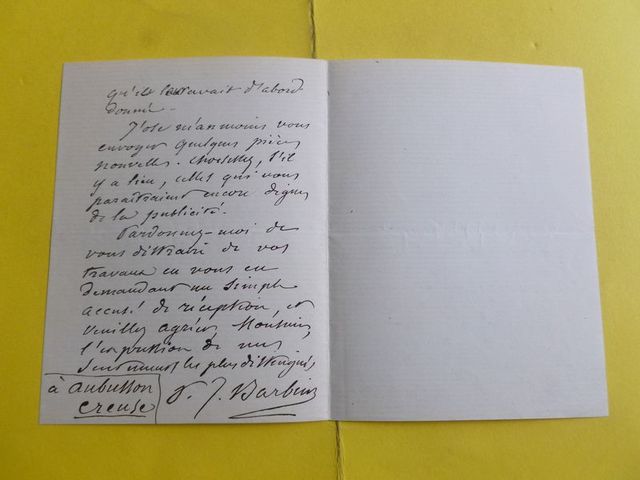 qu'il leur avait d'abord
donné –
J'ose néanmoins vous
envoyer quelques pièces
nouvelles. choisissez, s'il
y a lieu, celles qui vous
paraîtraient encore dignes
de la publicité.
Pardonnez-moi de
vous distraire de vos
travaux en vous en
demandant un simple
accusé de réception, et
veuillez agréer, Monsieur,
l'expression de mes
sentiments les plus distingués
à Aubusson
Creuse
J. Barbin